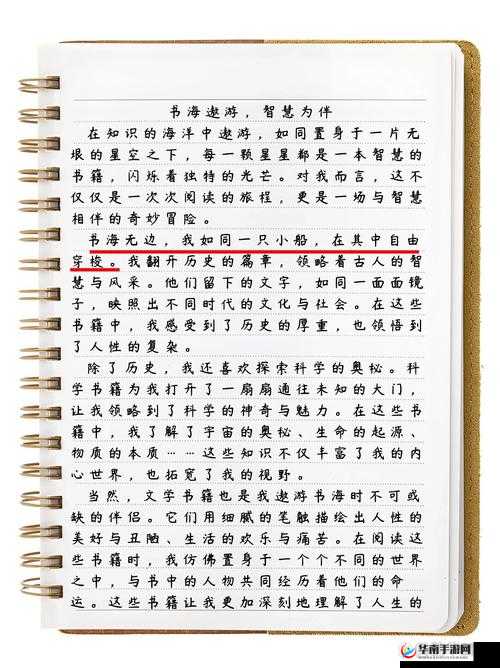 书海遨游，智慧为伴
在知识的海洋中遨游，如同置身于一片无
垠的星空之下，每一颗星星都是一本智慧的
书籍，闪烁着独特的光芒。对我而言，这不
仅仅是一次次阅读的旅程，更是一场与智慧
相伴的奇妙冒险。
书海无边，我如同一只小船，在其中自由
穿梭。我翻开历史的篇章，领略着古人的智
慧与风采。他们留下的文字，如同一面面镜
子，映照出不同时代的文化与社会。在这些
书籍中，我感受到了历史的厚重，也领悟到
了人性的复杂。
除了历史，我还喜欢探索科学的奥秘。科
学书籍为我打开了一扇扇通往未知的大门，
让我领略到了科学的神奇与魅力。在这些书
籍中，我了解了宇宙的奥秘、生命的起源、
物质的本质……这些知识不仅丰富了我的内
心世界，也拓宽了我的视野。
当然，文学书籍也是我遨游书海时不可或
缺的伴侣。它们用细腻的笔触描绘出人性的
美好与丑陋、生活的欢乐与痛苦。在阅读这
些书籍时，我仿佛置身于一个个不同的世界
之中，与书中的人物共同经历着他们的命
运。这些书籍让我更加深刻地理解了人生的
华南手游网